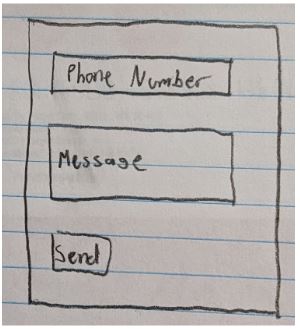 Phone Number
Message
Send